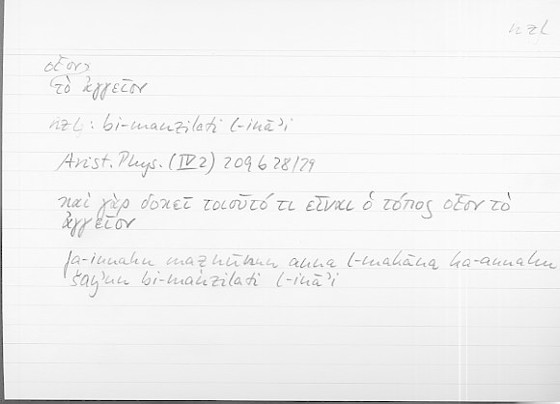 nzl
οἷον
τὸ ἀγγεῖον
nzl: bi-manzilati l-ināʾi
Arist. Phys. (IV 2) 209 b 28/29
καὶ γὰρ δοκεῖ τοιοῦτό τι εἶναι ὁ τόπος οἷον τὸ
ἀγγεῖον
fa-innahu maẓnūnun anna l-makāna ka-annahu
šayʾun bi-manzilati l-ināʾi